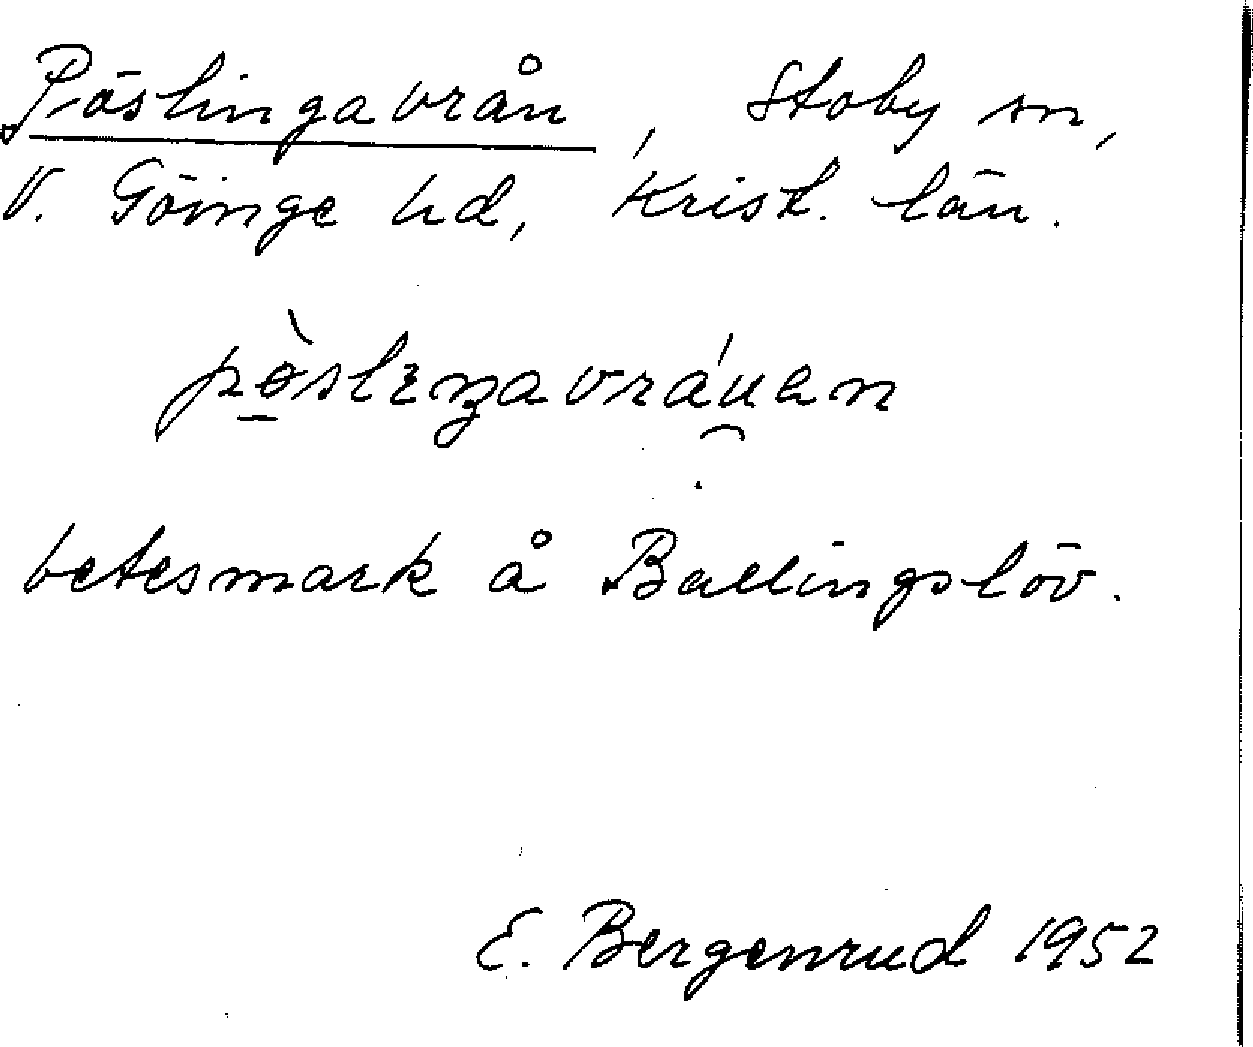 Pöslingavrån, Stoby sn,
V. Göinge hd, Krist. län.
pø̀slɪŋavráu̯ən
betesmark å Ballingslöv.
E. Bergenrud 1952